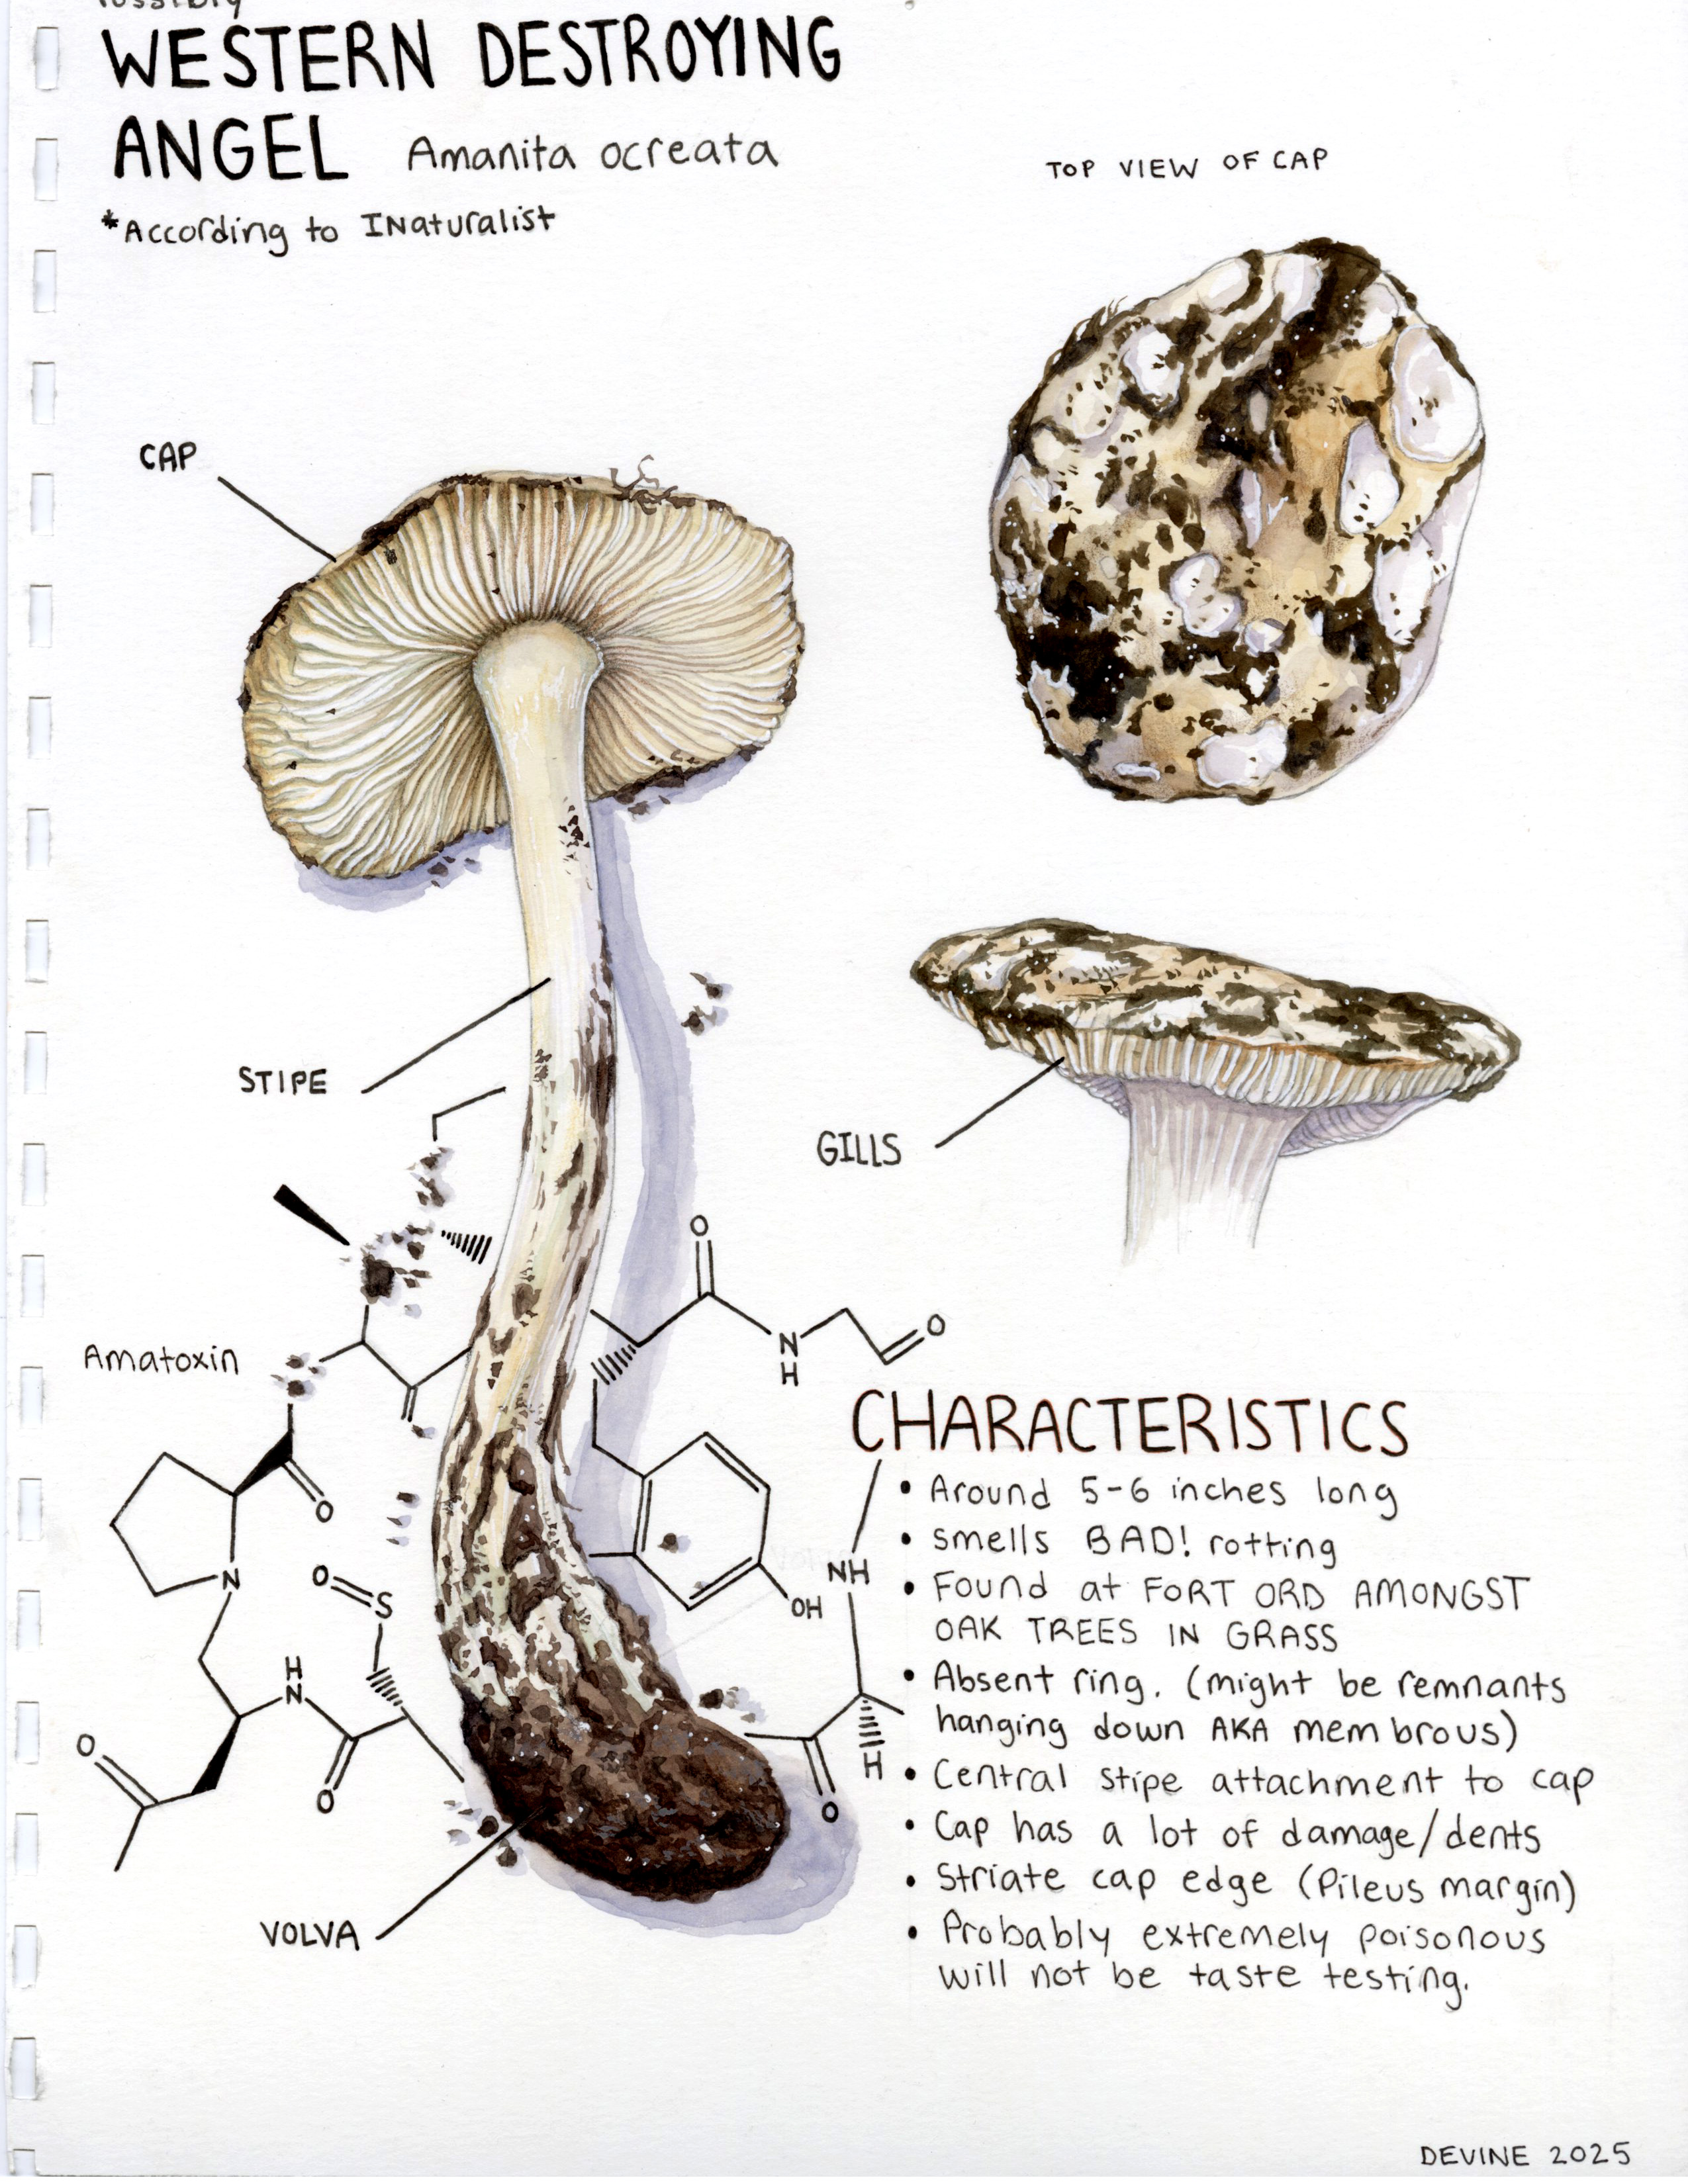 Possibly
WESTERN DESTROYING
ANGEL Amanita ocreata
*According to INaturalist
TOP VIEW OF CAP
CAP
STIPE
GILLS
O
N
H
O
Amatoxin
O
N
O
S
NH
OH
H
N
O
O
H
O
VOLVA
CHARACTERISTICS
• Around 5-6 inches long
• smells BAD! rotting
• Found at FORT ORD AMONGST
OAK TREES IN GRASS
• Absent ring. (might be remnants
hanging down AKA membrous)
• Central stipe attachment to cap
• Cap has a lot of damage/dents
• Striate cap edge (Pileus margin)
• Probably extremely poisonous
will not be taste testing.
DEVINE 2025